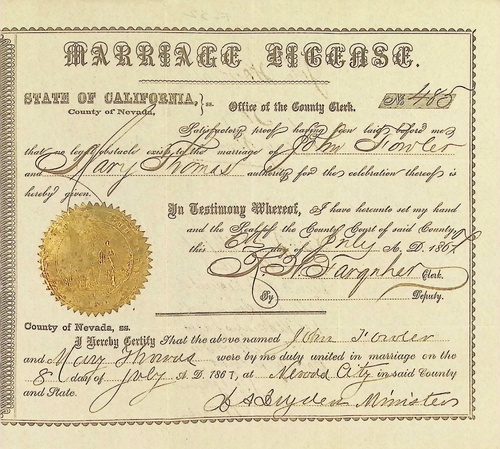 MARRIAGE LICENSE.
STATE OF CALIFORNIA, } ss. Office of the County Clerk. No 485
County of Nevada,
Satisfactory proof having been laid before me
that no legal obstacle exists to the marriage of John Fowler
and Mary Thomas authority for the celebration thereof is
hereby given.
In Testimony Whereof, I have hereunto set my hand
and the Seal of the County Court of said County
this day of July A. D. 1867
Farquher Clerk.
By Deputy.
County of Nevada, ss.
I Hereby Certify That the above named John Fowler
and Mary Thomas were by me duly united in marriage on the
8 day of July A. D. 1867, at Nevada City in said County
and State.
Minister